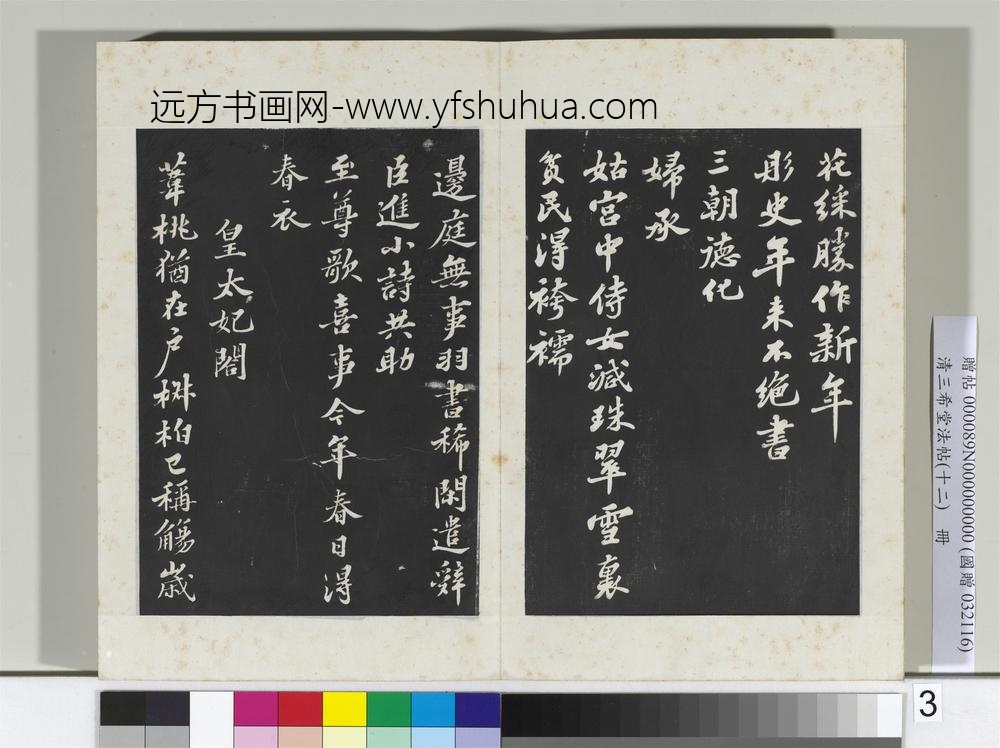 远方书画网-www.yfshuhua.com
花綵勝作新年
彤史年来不绝書
三朝德化
婦承
姑宫中侍女減珠翠雪裏
貧民淂袴襦
邊庭無事羽書稀閑遣辭
臣進小詩共助
至尊歌喜事今年春日淂
春衣
皇太妃閤
葦桃猶在户椒柏已稱觴歲
贈帖 000089N000000000 (國贈 032116)
清三希堂法帖(十二) 冊
3